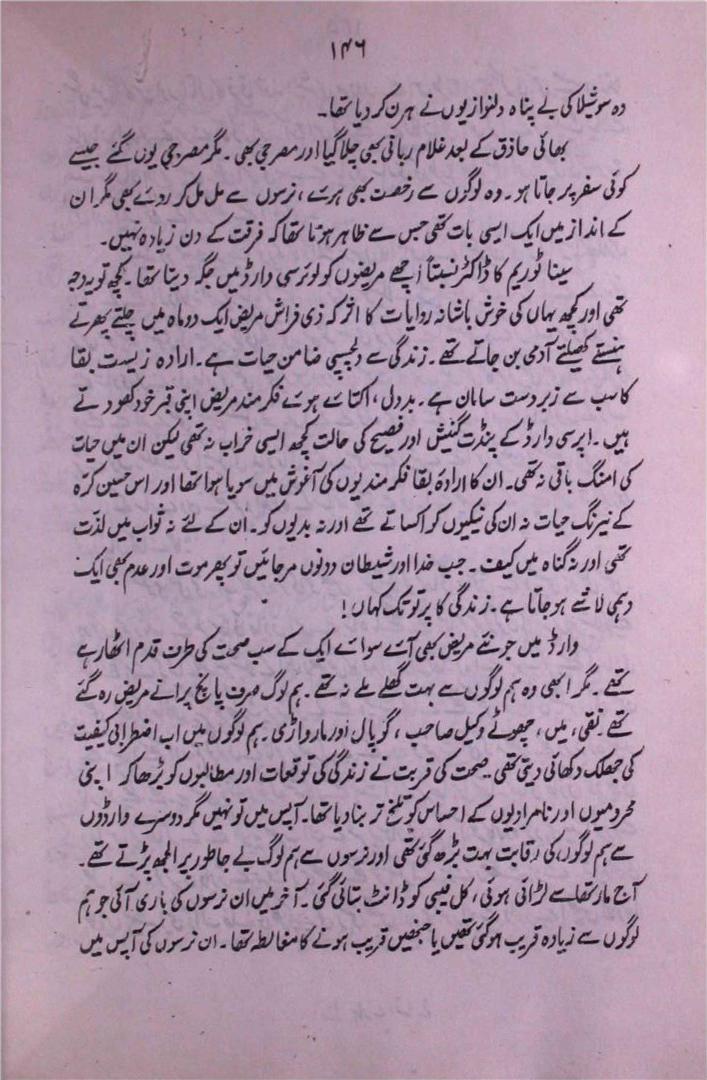 ۱۴۶
دہ سوشیلا کی بے پناہ دلنوازیوں نے ہرن کر دیا تھا۔
بھائی حاذق کے بعد غلام ربانی بھی چلا گیا اور مصرجی بھی۔ مگر مصرجی یوں گئے جیسے
کوئی سفر پر جاتا ہو۔ وہ لوگوں سے رخصت بھی ہوئے، نرسوں سے مل مل کر روئے بھی مگر ان
کے انداز میں ایک ایسی بات تھی جس سے ظاہر ہوتا تھا کہ فرقت کے دن زیادہ نہیں۔
سینا ٹوریم کا ڈاکٹر نسبتاً اچھے مریضوں کو لوئرسی وارڈ میں جگہ دیتا تھا۔ کچھ تو یہ وجہ
تھی اور کچھ یہاں کی خوش باشانہ روایات کا اثر کہ ذی فراش مریض ایک دو ماہ میں چلتے پھرتے
ہنستے کھیلتے آدمی بن جاتے تھے۔ زندگی سے دلچسپی ضامن حیات ہے۔ ارادہ زیست بقا
کا سب سے زبردست سامان ہے۔ بددل، اکتائے ہوئے فکرمند مریض اپنی قبر خود کھودتے
ہیں۔ اپرسی وارڈ کے پنڈت گنیش اور فصیح کی حالت کچھ ایسی خراب نہ تھی لیکن ان میں حیات
کی امنگ باقی نہ تھی۔ ان کا ارادۂ بقا فکرمندیوں کی آغوش میں سویا ہوا تھا اور اس حسین کرّہ
کے نیرنگ حیات نہ ان کی نیکیوں کو اکساتے تھے اور نہ بدیوں کو۔ ان کے لئے نہ ثواب میں لذّت
تھی اور نہ گناہ میں کیف۔ جب خدا اور شیطان دونوں مرجائیں تو پھر موت اور عدم بھی ایک
وہمی لاشے ہو جاتا ہے۔ زندگی کا پرتو تک کہاں!
وارڈ میں جو نئے مریض بھی آئے سوائے ایک کے سب صحت کی طرف قدم اٹھا رہے
تھے۔ مگر ابھی وہ ہم لوگوں سے بہت گھلے ملے نہ تھے۔ ہم لوگ صرف پانچ پرانے مریض رہ گئے
تھے۔ نقی، میں، چھوٹے وکیل صاحب، گوپال اور مارواڑی۔ ہم لوگوں میں اب اضطرابی کیفیت
کی جھلک دکھائی دیتی تھی۔ صحت کی قربت نے زندگی کی توقعات اور مطالبوں کو بڑھا کر اپنی
محرومیوں اور نامرادیوں کے احساس کو تلخ تر بنا دیا تھا۔ آپس میں تو نہیں مگر دوسرے وارڈوں
سے ہم لوگوں کی رقابت بہت بڑھ گئی تھی اور نرسوں سے ہم لوگ بے جا طور پر الجھ پڑتے تھے۔
آج مارتھا سے لڑائی ہوئی، کل فیبی کو ڈانٹ بتائی گئی۔ آخر میں ان نرسوں کی باری آئی جو ہم
لوگوں سے زیادہ قریب ہو گئی تھیں یا جنھیں قریب ہونے کا مغالطہ تھا۔ ان نرسوں کی آپس میں